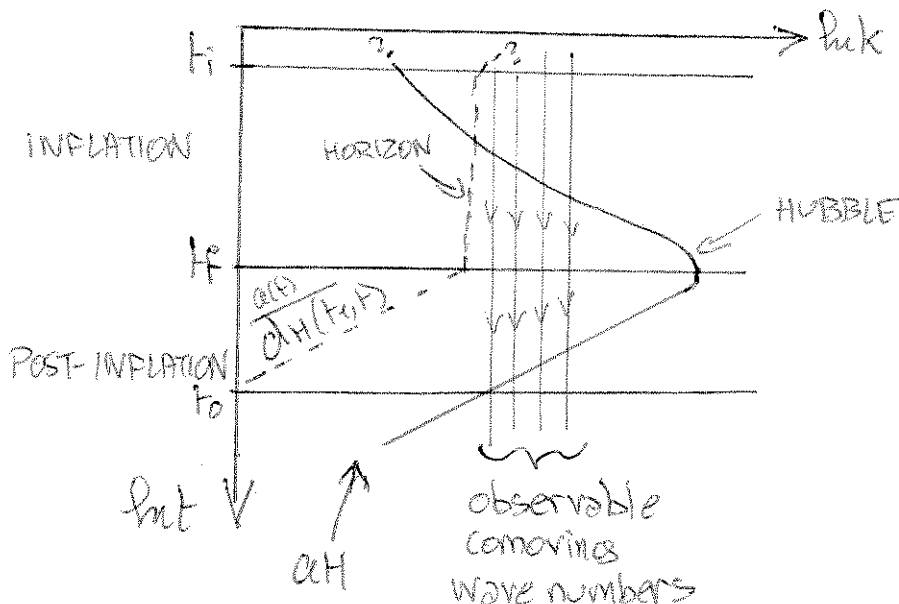 ln k
?
?
ti
INFLATION
HORIZON
HUBBLE
tf
a(t)
dH(ti,t)
POST-INFLATION
t0
ln t
aH
observable
comovings
wave numbers